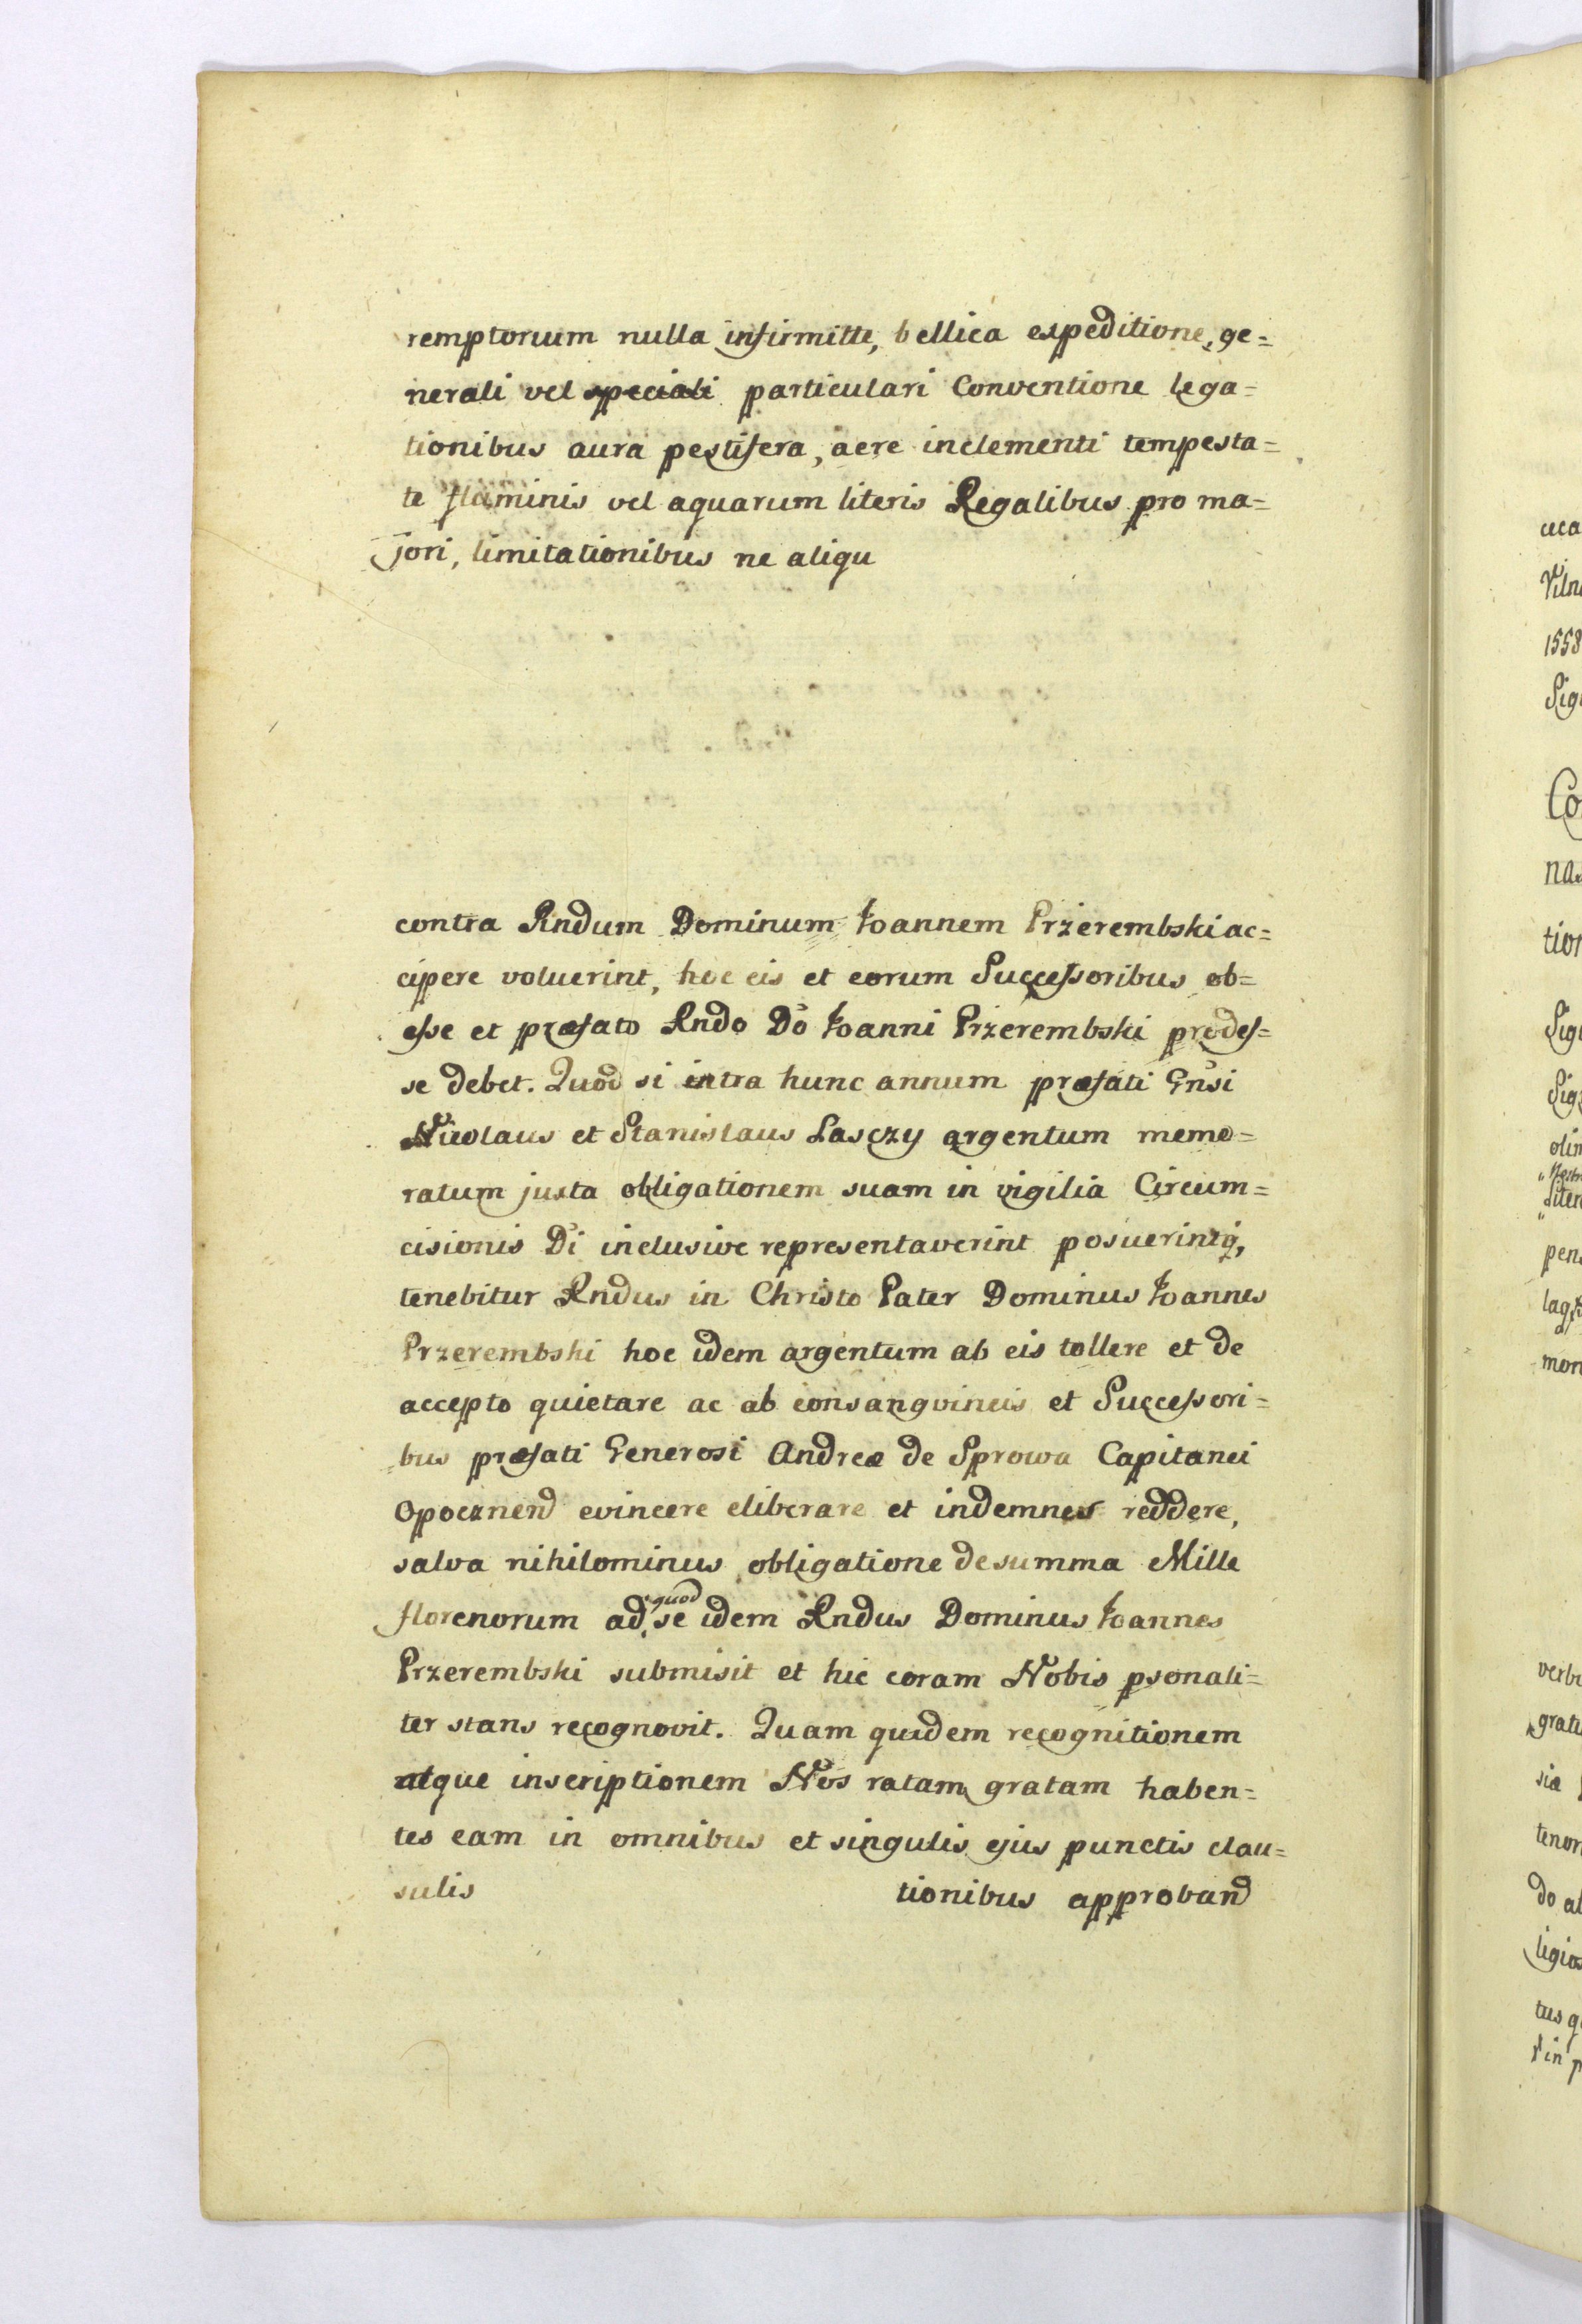 remptorium nulla infirmitte, bellica expeditione, ge=
nerali vel speciali particulari Conventione lega=
tionibus aura pestifera, aere inclementi tempesta=
te fluminis vel aquarum literis Regalibus pro ma=
jori, limitationibus ne aliqu
contra Rndum Dominum Joannem Przerembski ac=
cipere voluerint, hoc eis et eorum Successoribus ob=
esse et præfato Rndo Do Joanni Przerembski prodes=
se debet. Quod si intra hunc annum præfati Gnsi
Nicolaus et Stanislaus Lasczy argentum memo=
ratum juxta obligationem suam in vigilia Circum=
cisionis Di inclusive representaverint posuerintq,
tenebitur Rndus in Christo Pater Dominus Joannes
Przerembski hoc idem argentum ab eis tollere et de
accepto quietare ac ab consangvineis et Successori=
bus præfati Generosi Andreæ de Sprowa Capitanei
Opocznen evincere eliberare et indemnes reddere,
salva nihilominus obligatione de summa Mille
florenorum ad quod se idem Rndus Dominus Joannes
Przerembski submisit et hic coram Nobis psonali=
ter stans recognovit. Quam quidem recognitionem
atque inscriptionem Nos ratam gratam haben=
tes eam in omnibus et singulis ejus punctis clau=
sulis tionibus approband
ceca
Viln
1558
Sig
Co
na
tion
Sig
Sig
olim
liter
pen
lag
mon
verb
grat
sia
tenor
do al
ligio
tus q
in p